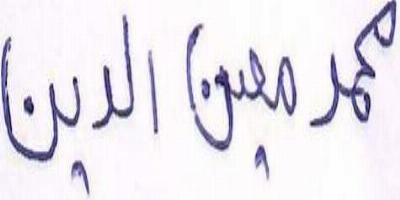 محمد معين الدين